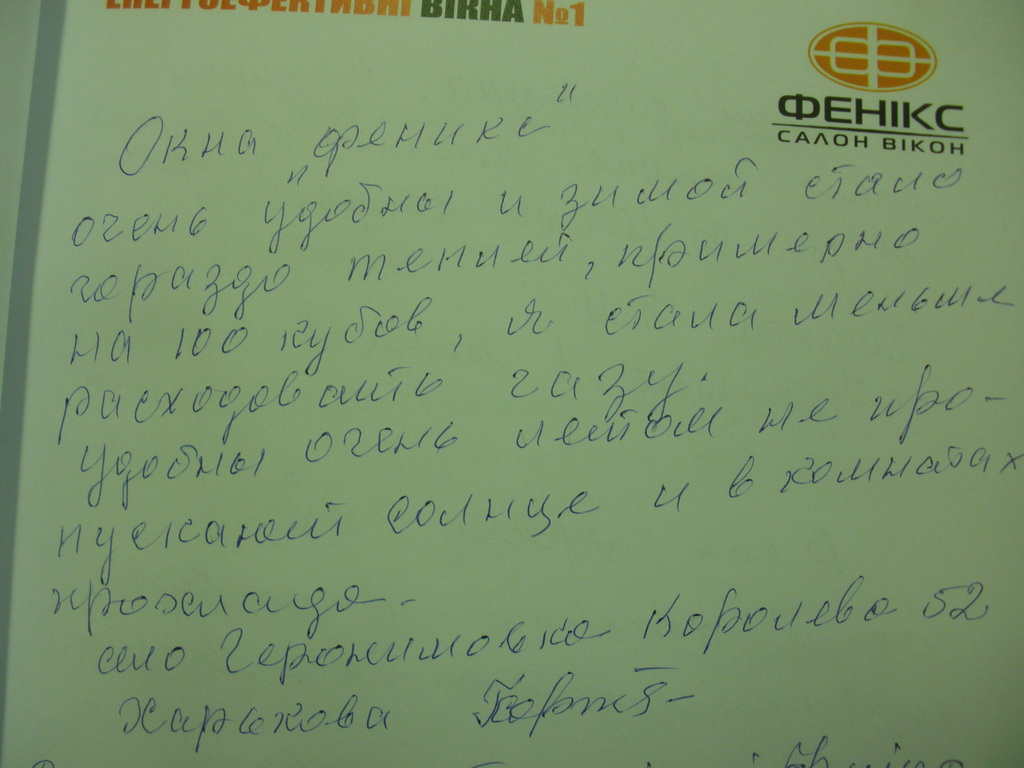 ЕНЕРГОЕФЕКТИВНІ ВІКНА №1
ФЕНІКС
САЛОН ВІКОН
Окна „феникс"
очень удобны и зимой стало
гораздо теплей, примерно
на 100 кубов, я стала меньше
расходовать газу.
Удобны очень летом не про-
пускают солнце и в комнатах
прохлада.
село Геронимовка Королева 52
Харькова